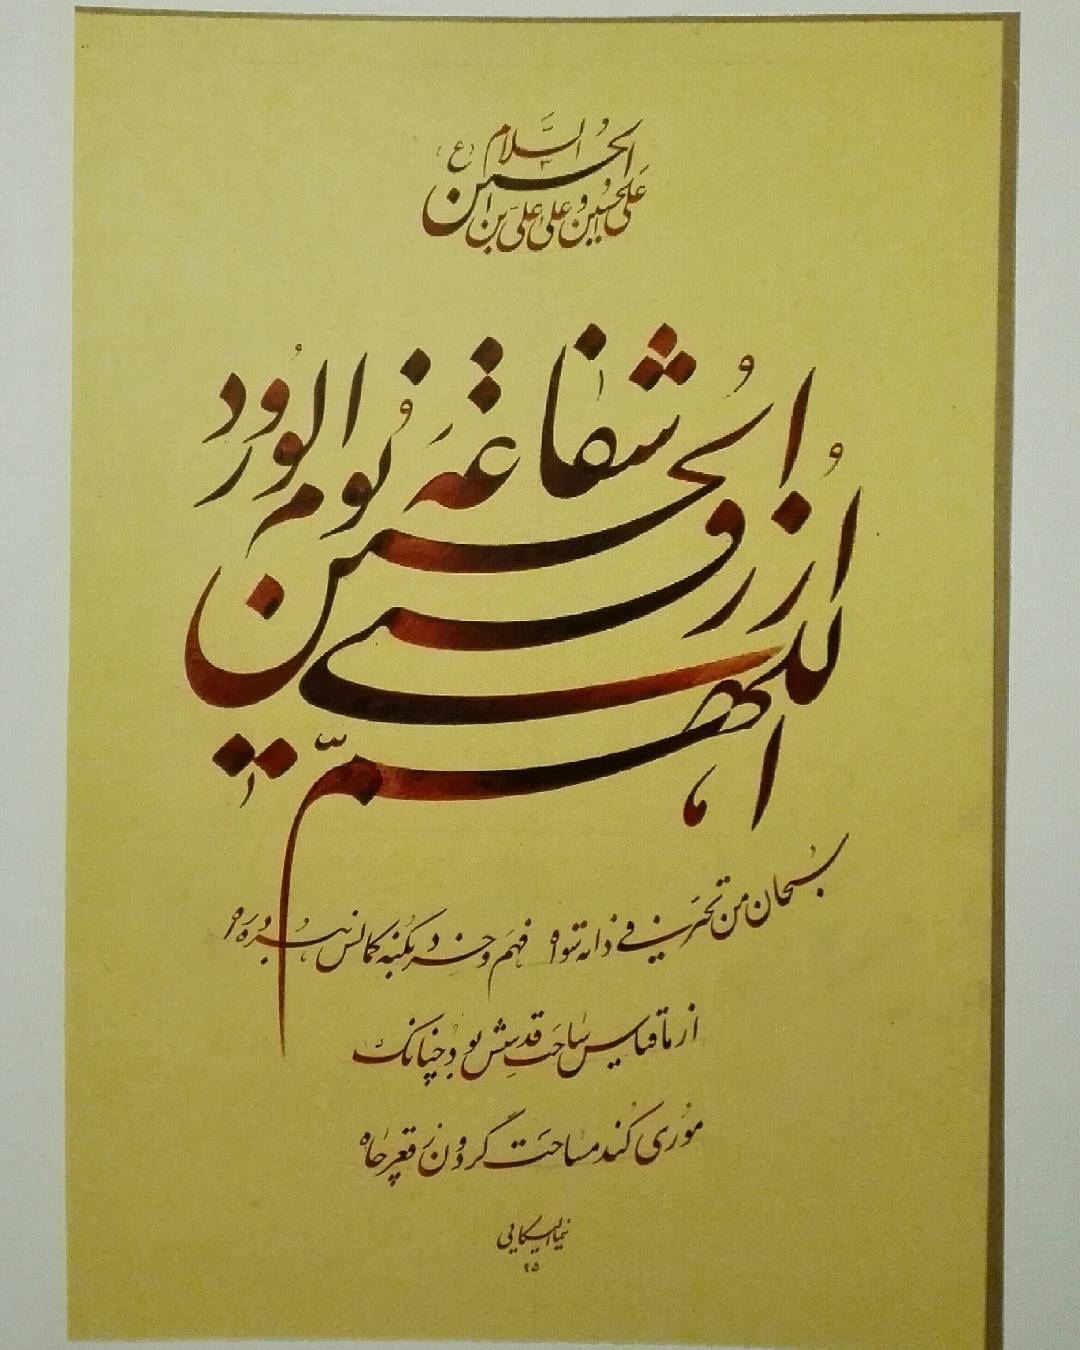 السَّلام
عَلَی الحُسین و علی علی بن الحسین (ع)
اللهمّ ارزقنی شفاعَة الحُسین یُوم الوُرُود
سُبحان من تحیّر فی ذاته سواه فهم و خرد بکُنه کمالش نبُرده ره
از ما قیاس ساحت قدسِش بود چنانک
مُوری کُند مساحت گردون ز قعر چاه
نیما الیکایی
۹۵